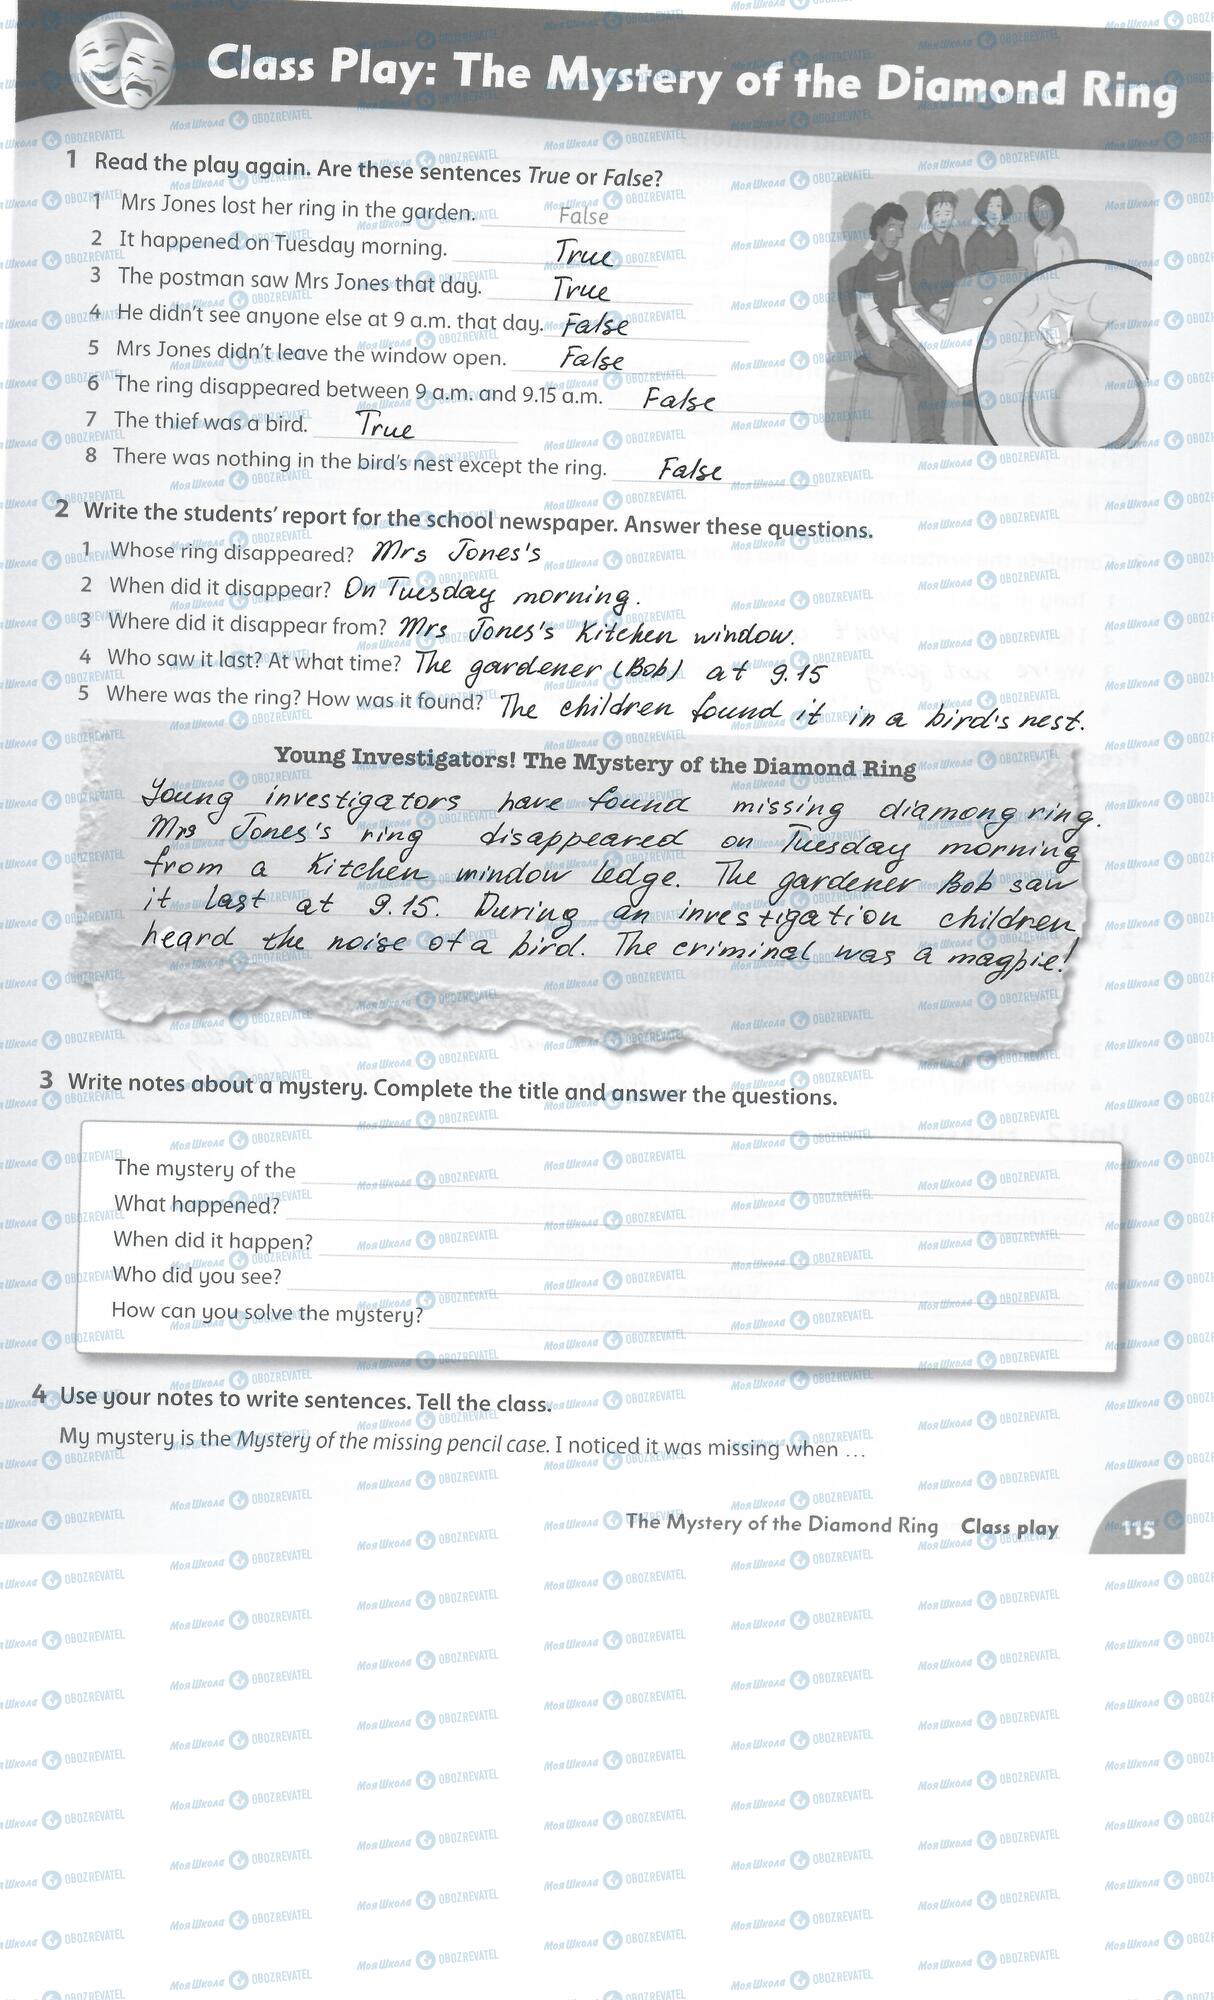 Class Play: The Mystery of the Diamond Ring
1 Read the play again. Are these sentences True or False?
1 Mrs Jones lost her ring in the garden. False
2 It happened on Tuesday morning. True
3 The postman saw Mrs Jones that day. True
4 He didn't see anyone else at 9 a.m. that day. False
5 Mrs Jones didn't leave the window open. False
6 The ring disappeared between 9 a.m. and 9.15 a.m. False
7 The thief was a bird. True
8 There was nothing in the bird's nest except the ring. False
2 Write the students' report for the school newspaper. Answer these questions.
1 Whose ring disappeared? Mrs Jones's
2 When did it disappear? On Tuesday morning.
3 Where did it disappear from? Mrs Jones's kitchen window.
4 Who saw it last? At what time? The gardener (Bob) at 9.15
5 Where was the ring? How was it found? The children found it in a bird's nest.
Young Investigators! The Mystery of the Diamond Ring
Young investigators have found missing diamong ring.
Mrs Jones's ring disappeared on Tuesday morning
from a kitchen window ledge. The gardener Bob saw
it last at 9.15. During an investigation children
heard the noise of a bird. The criminal was a magpie!
3 Write notes about a mystery. Complete the title and answer the questions.
The mystery of the
What happened?
When did it happen?
Who did you see?
How can you solve the mystery?
4 Use your notes to write sentences. Tell the class.
My mystery is the Mystery of the missing pencil case. I noticed it was missing when ...
The Mystery of the Diamond Ring Class play 115
МояШкола OBOZREVATEL